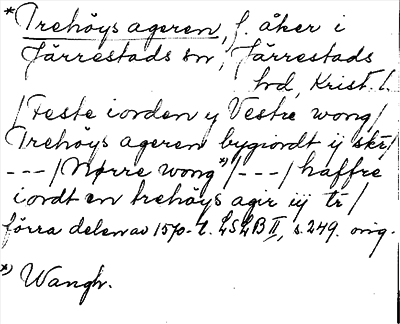 *Trehöys ageren, f. åker i
Järrestads sn, Järrestads
hrd, Krist. l.
/Feste iorden y Vestre wong/
Trehöys ageren bygiordt ij skr/
---/Nørre wong*)/---/haffre
iordt en trehöys ager iij tr/
förra delen av 1570-t. LSLB II, s. 249. orig.
*) Wangh.